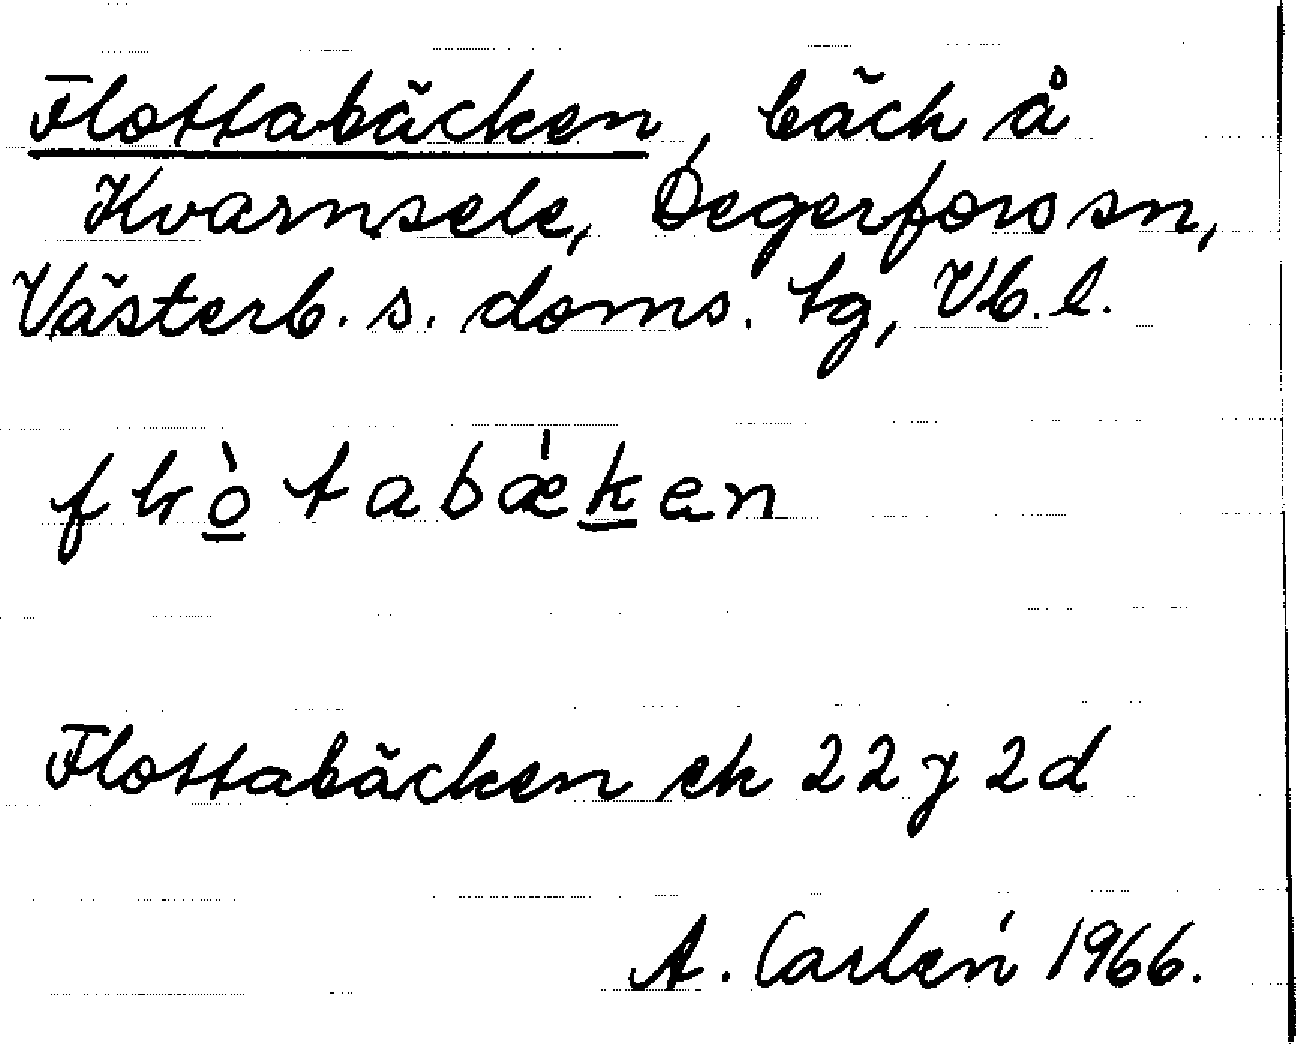 Flottabäcken, bäck å
Kvarnsele, Degerfors sn,
Västerb. s. doms. tg, Vb. l.
Flottabäcken ek 22 J 2d
A. Carlén 1966.